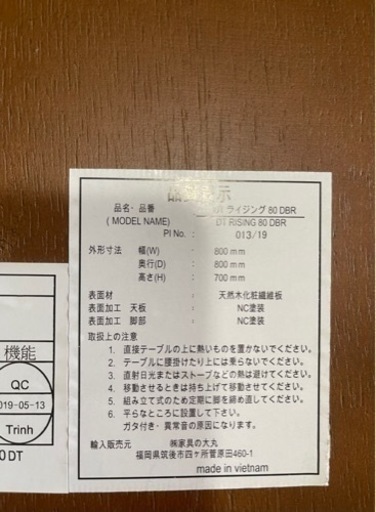 品質表示
品名・品番 DT ライジング 80 DBR
( MODEL NAME) DT RISING 80 DBR
PI No. : 013/19
外形寸法 幅(W) 800 mm
奥行(D) 800 mm
高さ(H) 700 mm
表面材 天然木化粧繊維板
表面加工 天板 NC塗装
表面加工 脚部 NC塗装
取扱上の注意
1. 直接テーブルの上に熱いものを置かないでください。
2. テーブルに腰掛けたり上には乗らないでください。
3. 直射日光またはストーブなどの熱は避けてください。
4. 移動させるときは持ち上げて移動させてください。
5. 組み立て式のため定期に脚を締め直してください。
6. 平らなところに設置して下さい。
ガタ付き・異常音の原因になります。
輸入販売元 ㈱家具の大丸
福岡県筑後市四ヶ所菅原田460-1
made in vietnam
機能
QC
2019-05-13
Trinh
0 DT